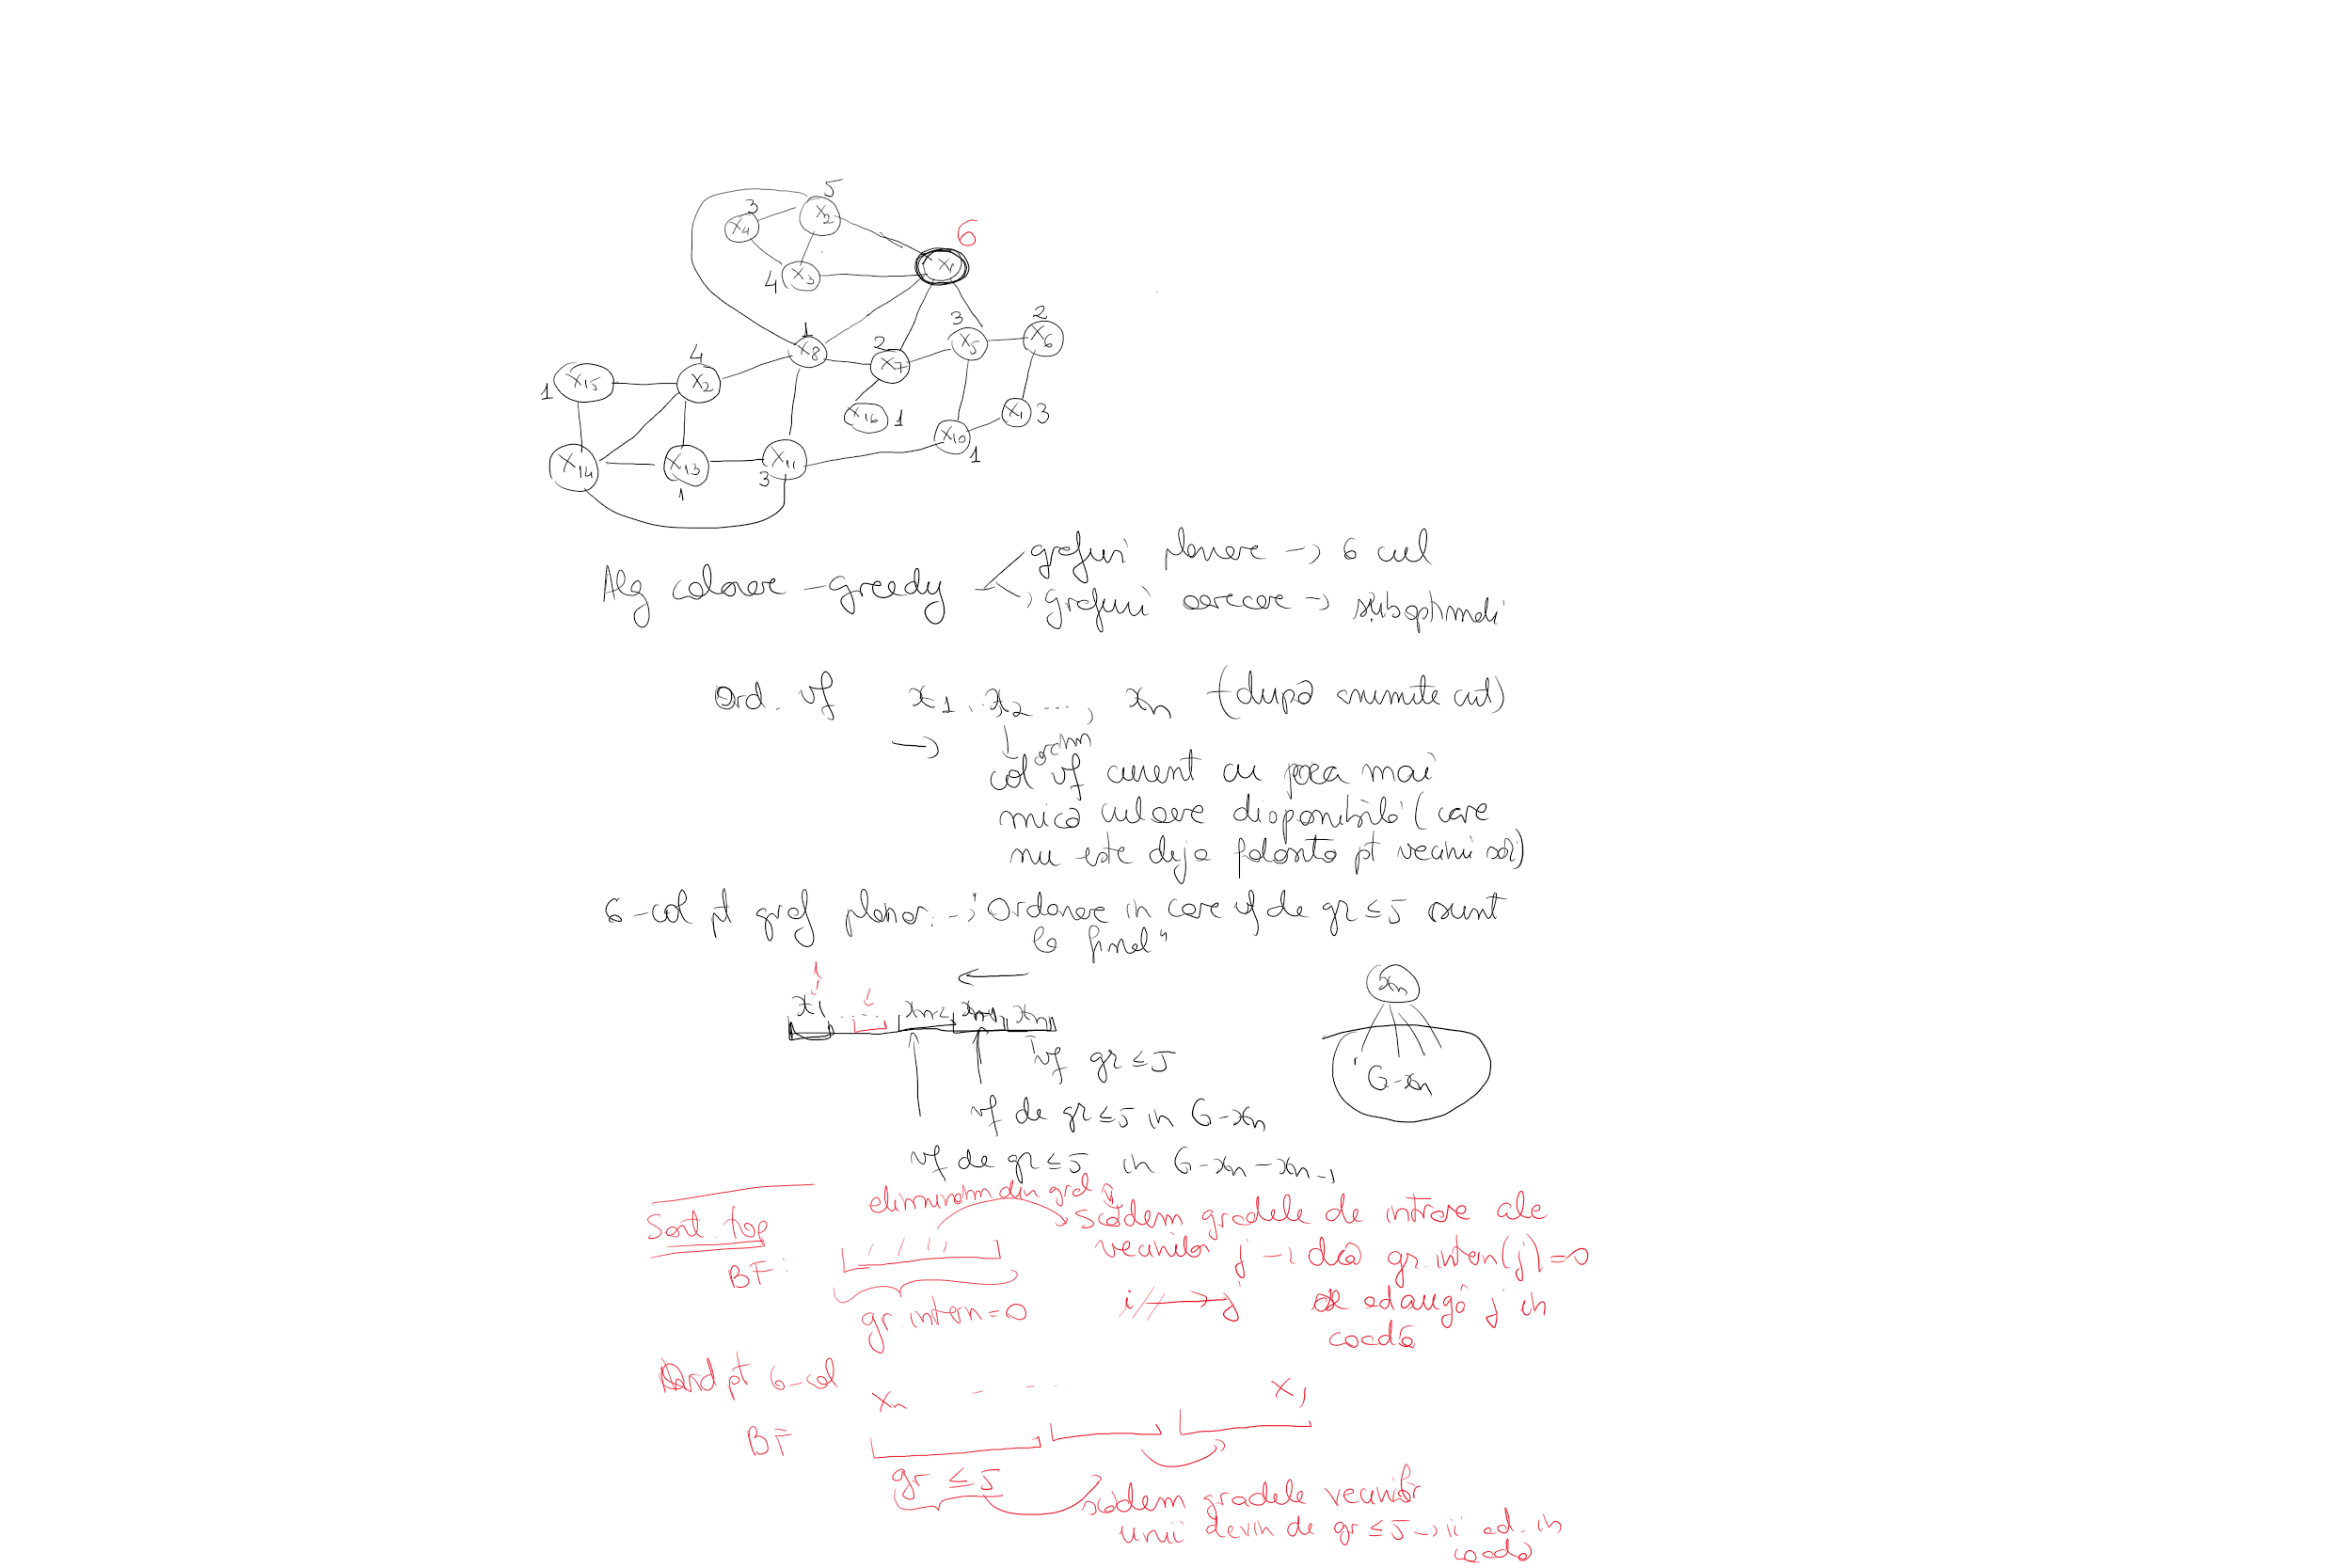 5
3
x2
x4
6
x1
4
x3
1
2
3
2
x8
x7
x5
x6
4
1
x15
x2
x16
1
x1
3
x10
1
x14
x13
x11
1
3
Alg colorare - greedy
grafuri planare -> 6 cul
grafuri oarecare -> suboptimală
Ord. vf x1, x2 ..., xn (după anumite crit)
->
ordin
col vf curent cu cea mai
mică culoare disponibilă (care
nu este deja folosită pt vecinii săi)
6-col pt graf planar: -> "Ordonare in care vf de gr ≤ 5 sunt
la final"
1
x1 ..... xn-2 xn-1 xn
xn
G-xn
vf gr ≤ 5
vf de gr ≤ 5 in G-xn
vf de gr ≤ 5 in G-xn-xn-1
eliminăm din graf
Sort. top
scădem gradele de intrare ale
vecinilor j -> dacă gr. intern(j)=0
BF:
gr. intern=0
i -> j
se adaugă j in
coadă
Ord pt 6-col
xn - - .. x1
BF
gr ≤ 5
scădem gradele vecinilor
unii devin de gr ≤ 5 -> ii ad. in
coada